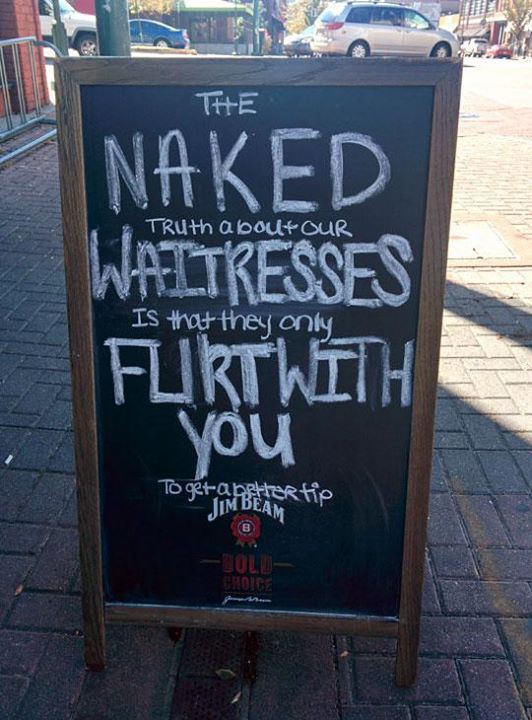 THE
NAKED
Truth about our
WAITRESSES
Is that they only
FLIRT WITH
YOU
To get a better tip
JIM BEAM
B
BOLD
CHOICE